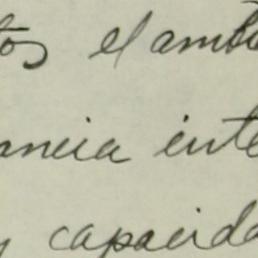 tos el ambie
ancia inte
y capacida